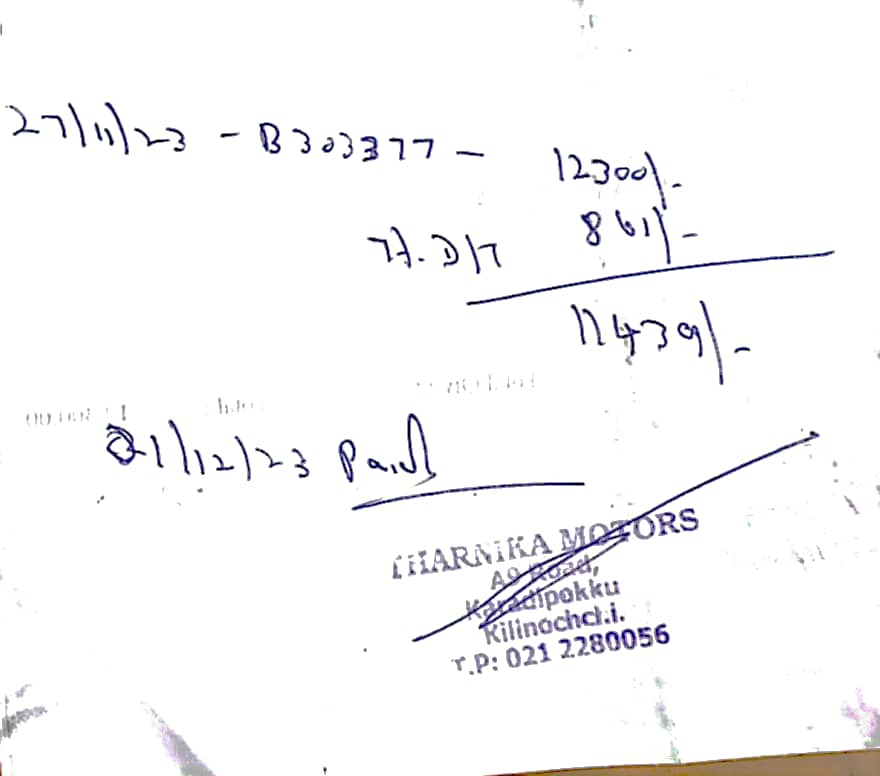 27/11/23 - B303377 - 12300/-
7%. D/T 861/-
11439/-
21/12/23 Paid
THARNIKA MOTORS
A9 Road,
Karadipokku
Kilinochchi.
T.P: 021 2280056